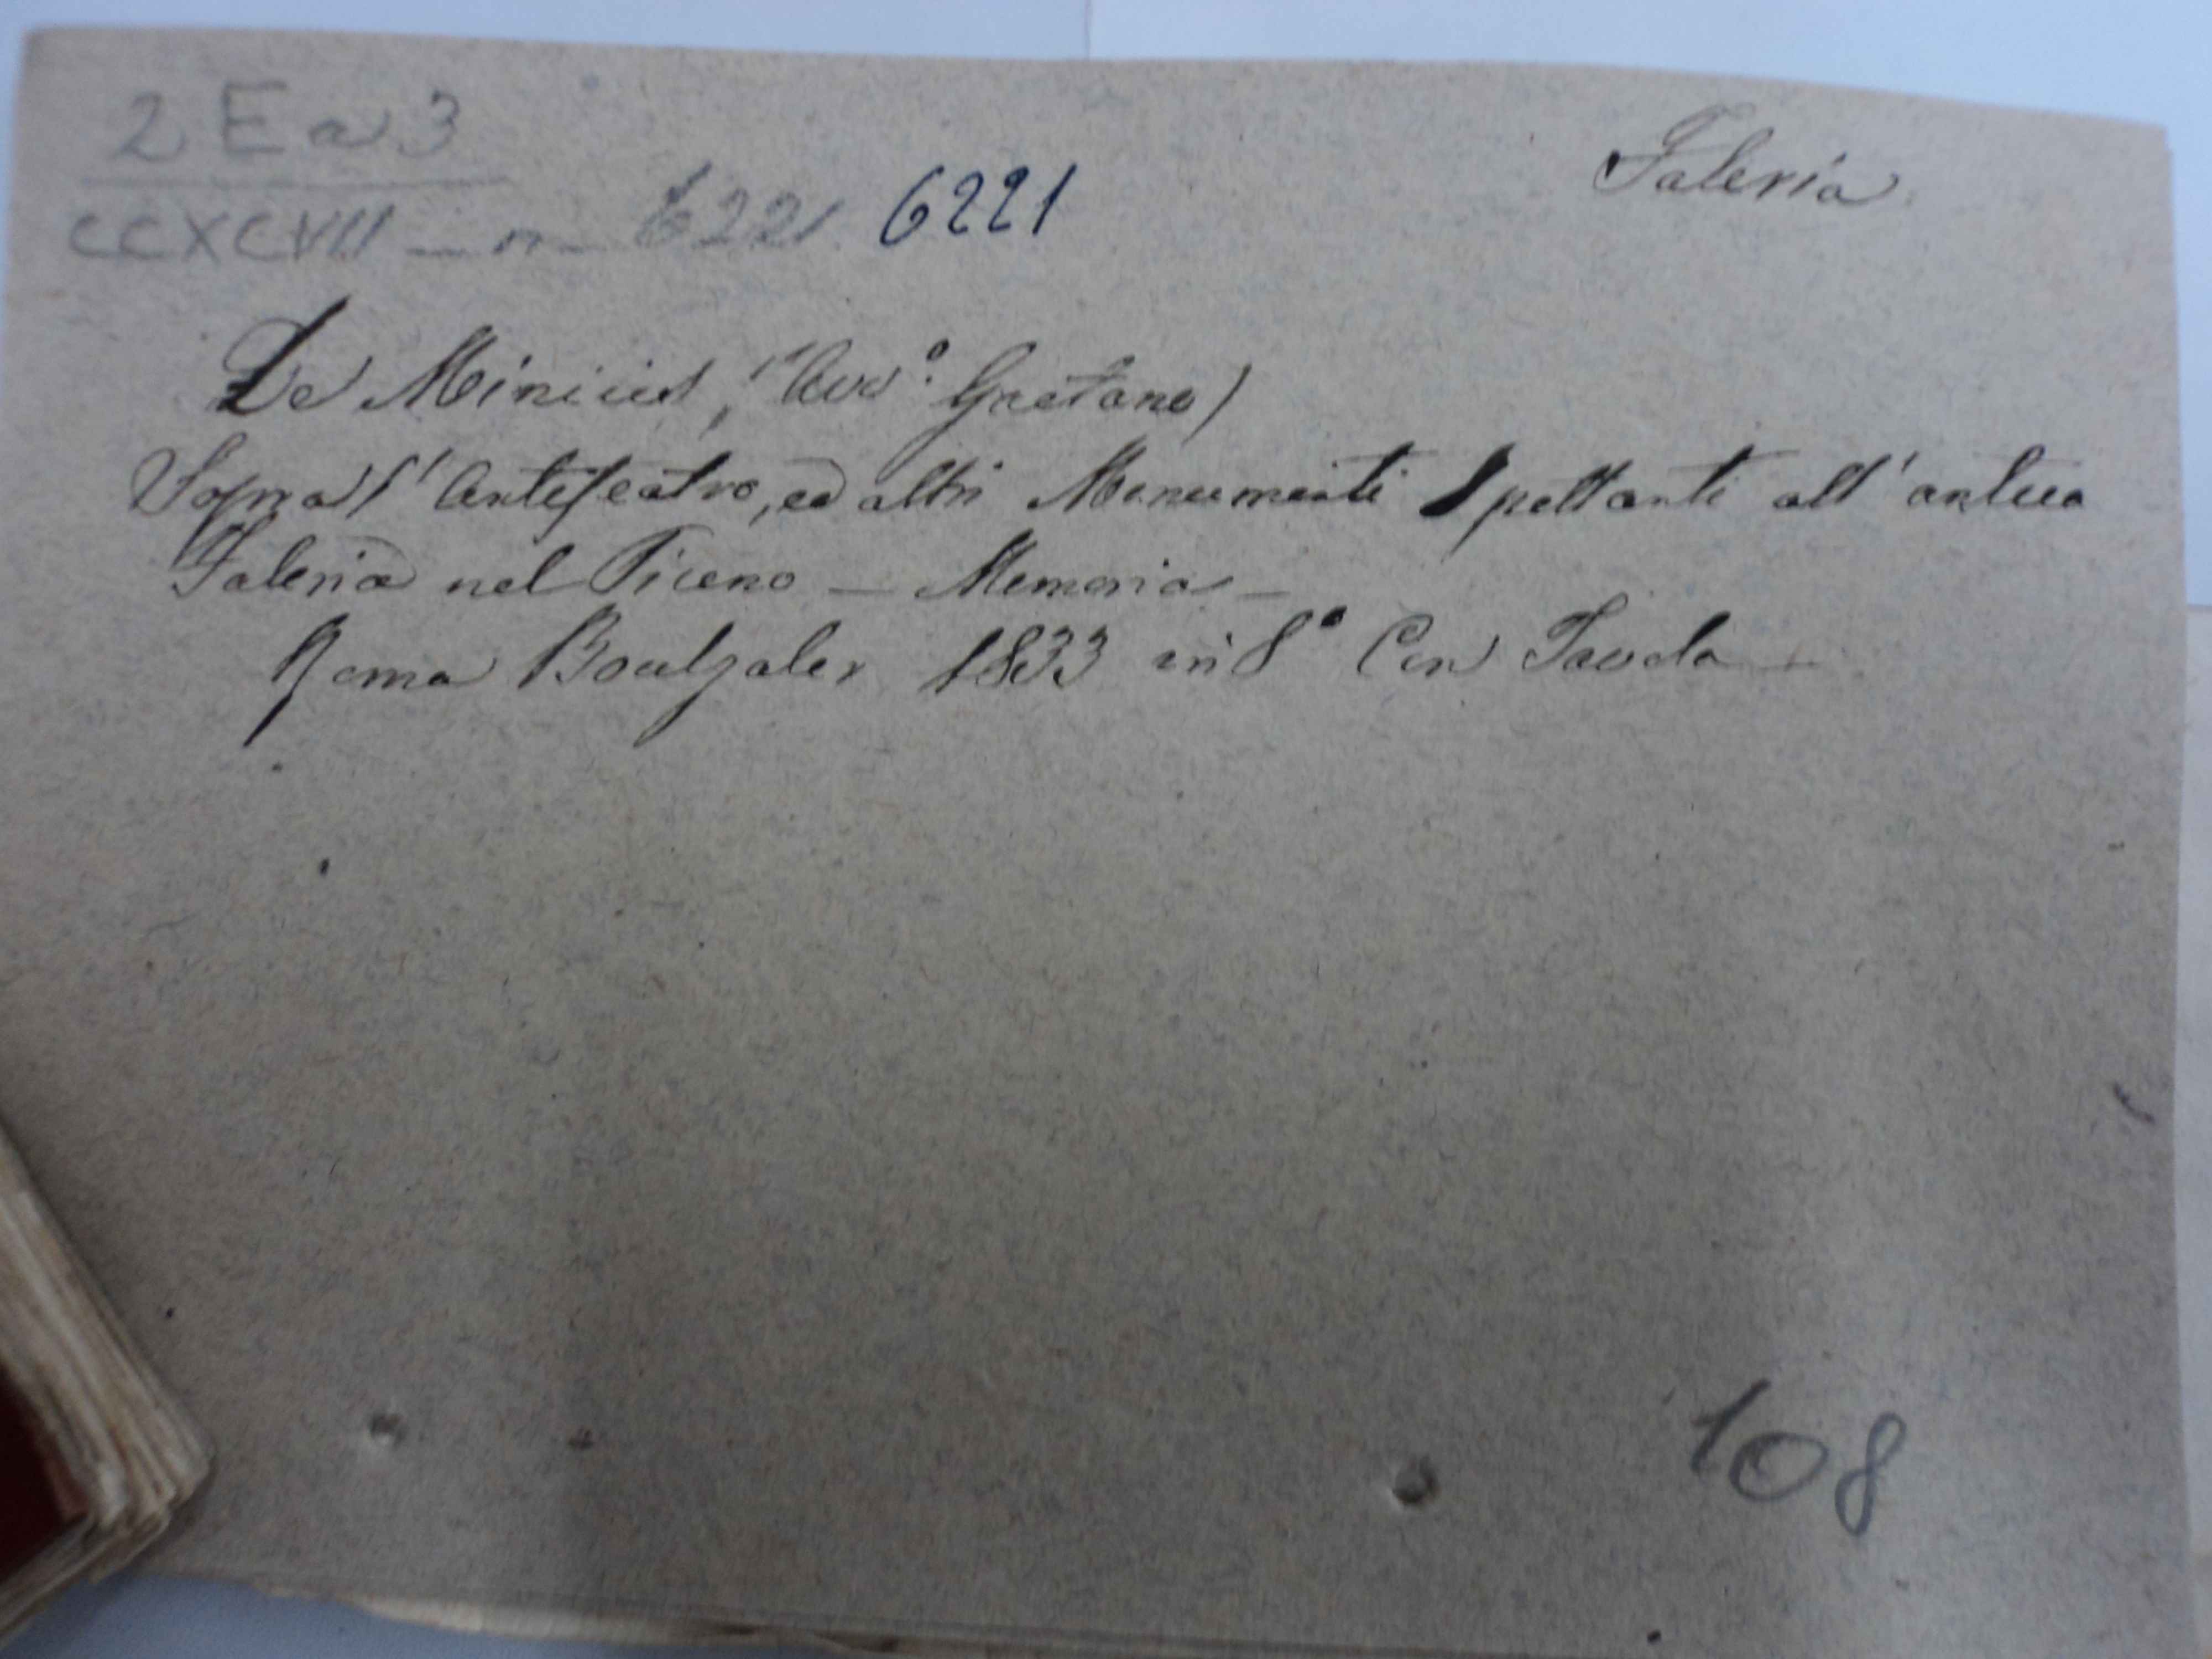 2 E a 3
Faleria
CCXCVII - n - 6221 6221
De Minicis, (Avv.º Gaetano)
Sopra l'Anfiteatro, ed altri Monumenti Spettanti all'antica
Faleria nel Piceno - Memoria -
Roma Boulzaler 1833 in 8º Con Tavola -
108